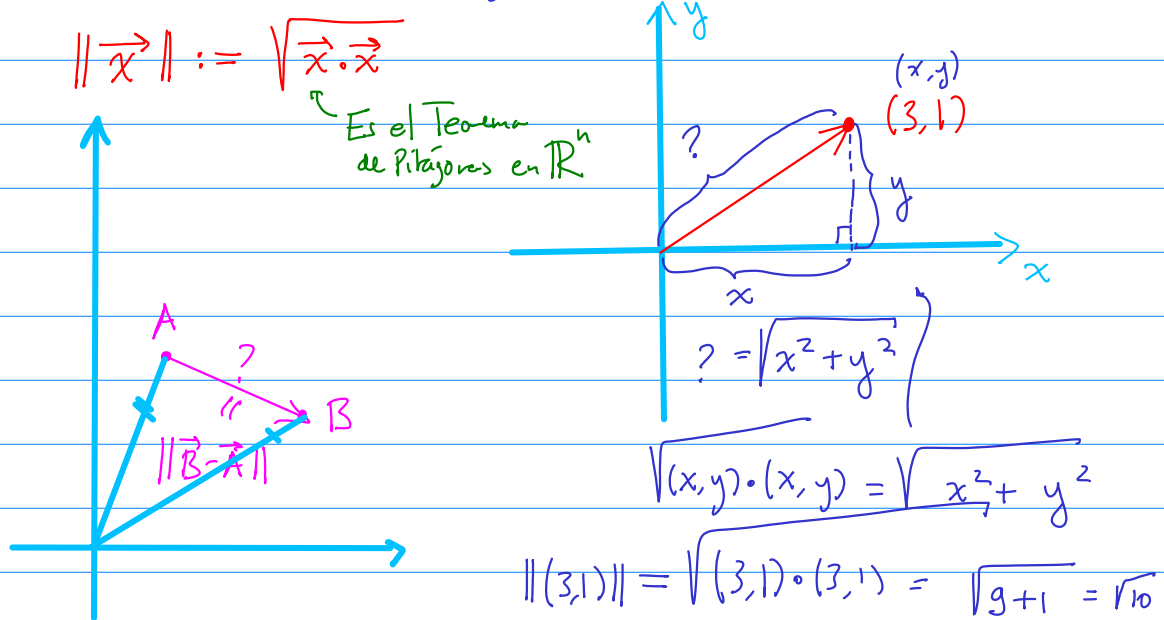 ‖x⃗‖ := √(x⃗·x⃗)
Es el Teorema
de Pitágoras en ℝⁿ
y
(x,y)
(3,1)
?
y
x
x
? = √(x² + y²)
A
?
"
B
‖B⃗-A⃗‖
√((x,y)·(x,y)) = √(x² + y²)
‖(3,1)‖ = √((3,1)·(3,1)) = √(9+1) = √10